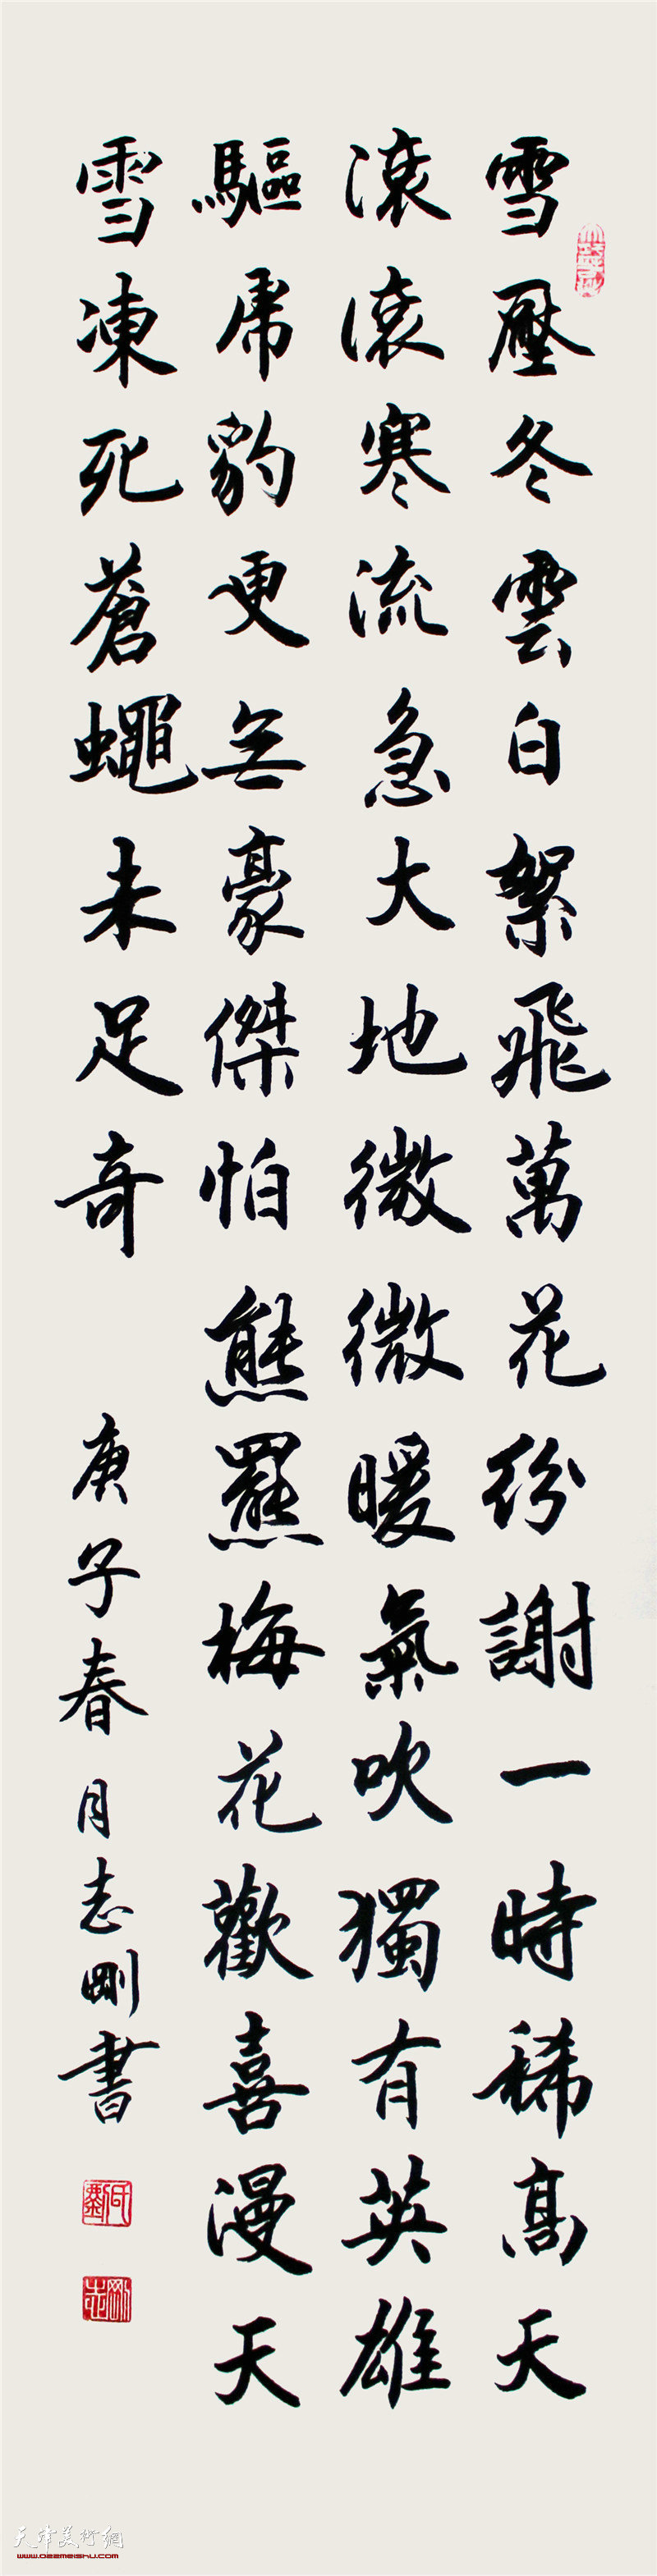 雪壓冬雲白絮飛萬花紛謝一時稀高天
滾滾寒流急大地微微暖氣吹獨有英雄
驅虎豹更無豪傑怕熊羆梅花歡喜漫天
雪凍死蒼蠅未足奇
庚子春月志剛書
天津美術網
www.022meishu.com